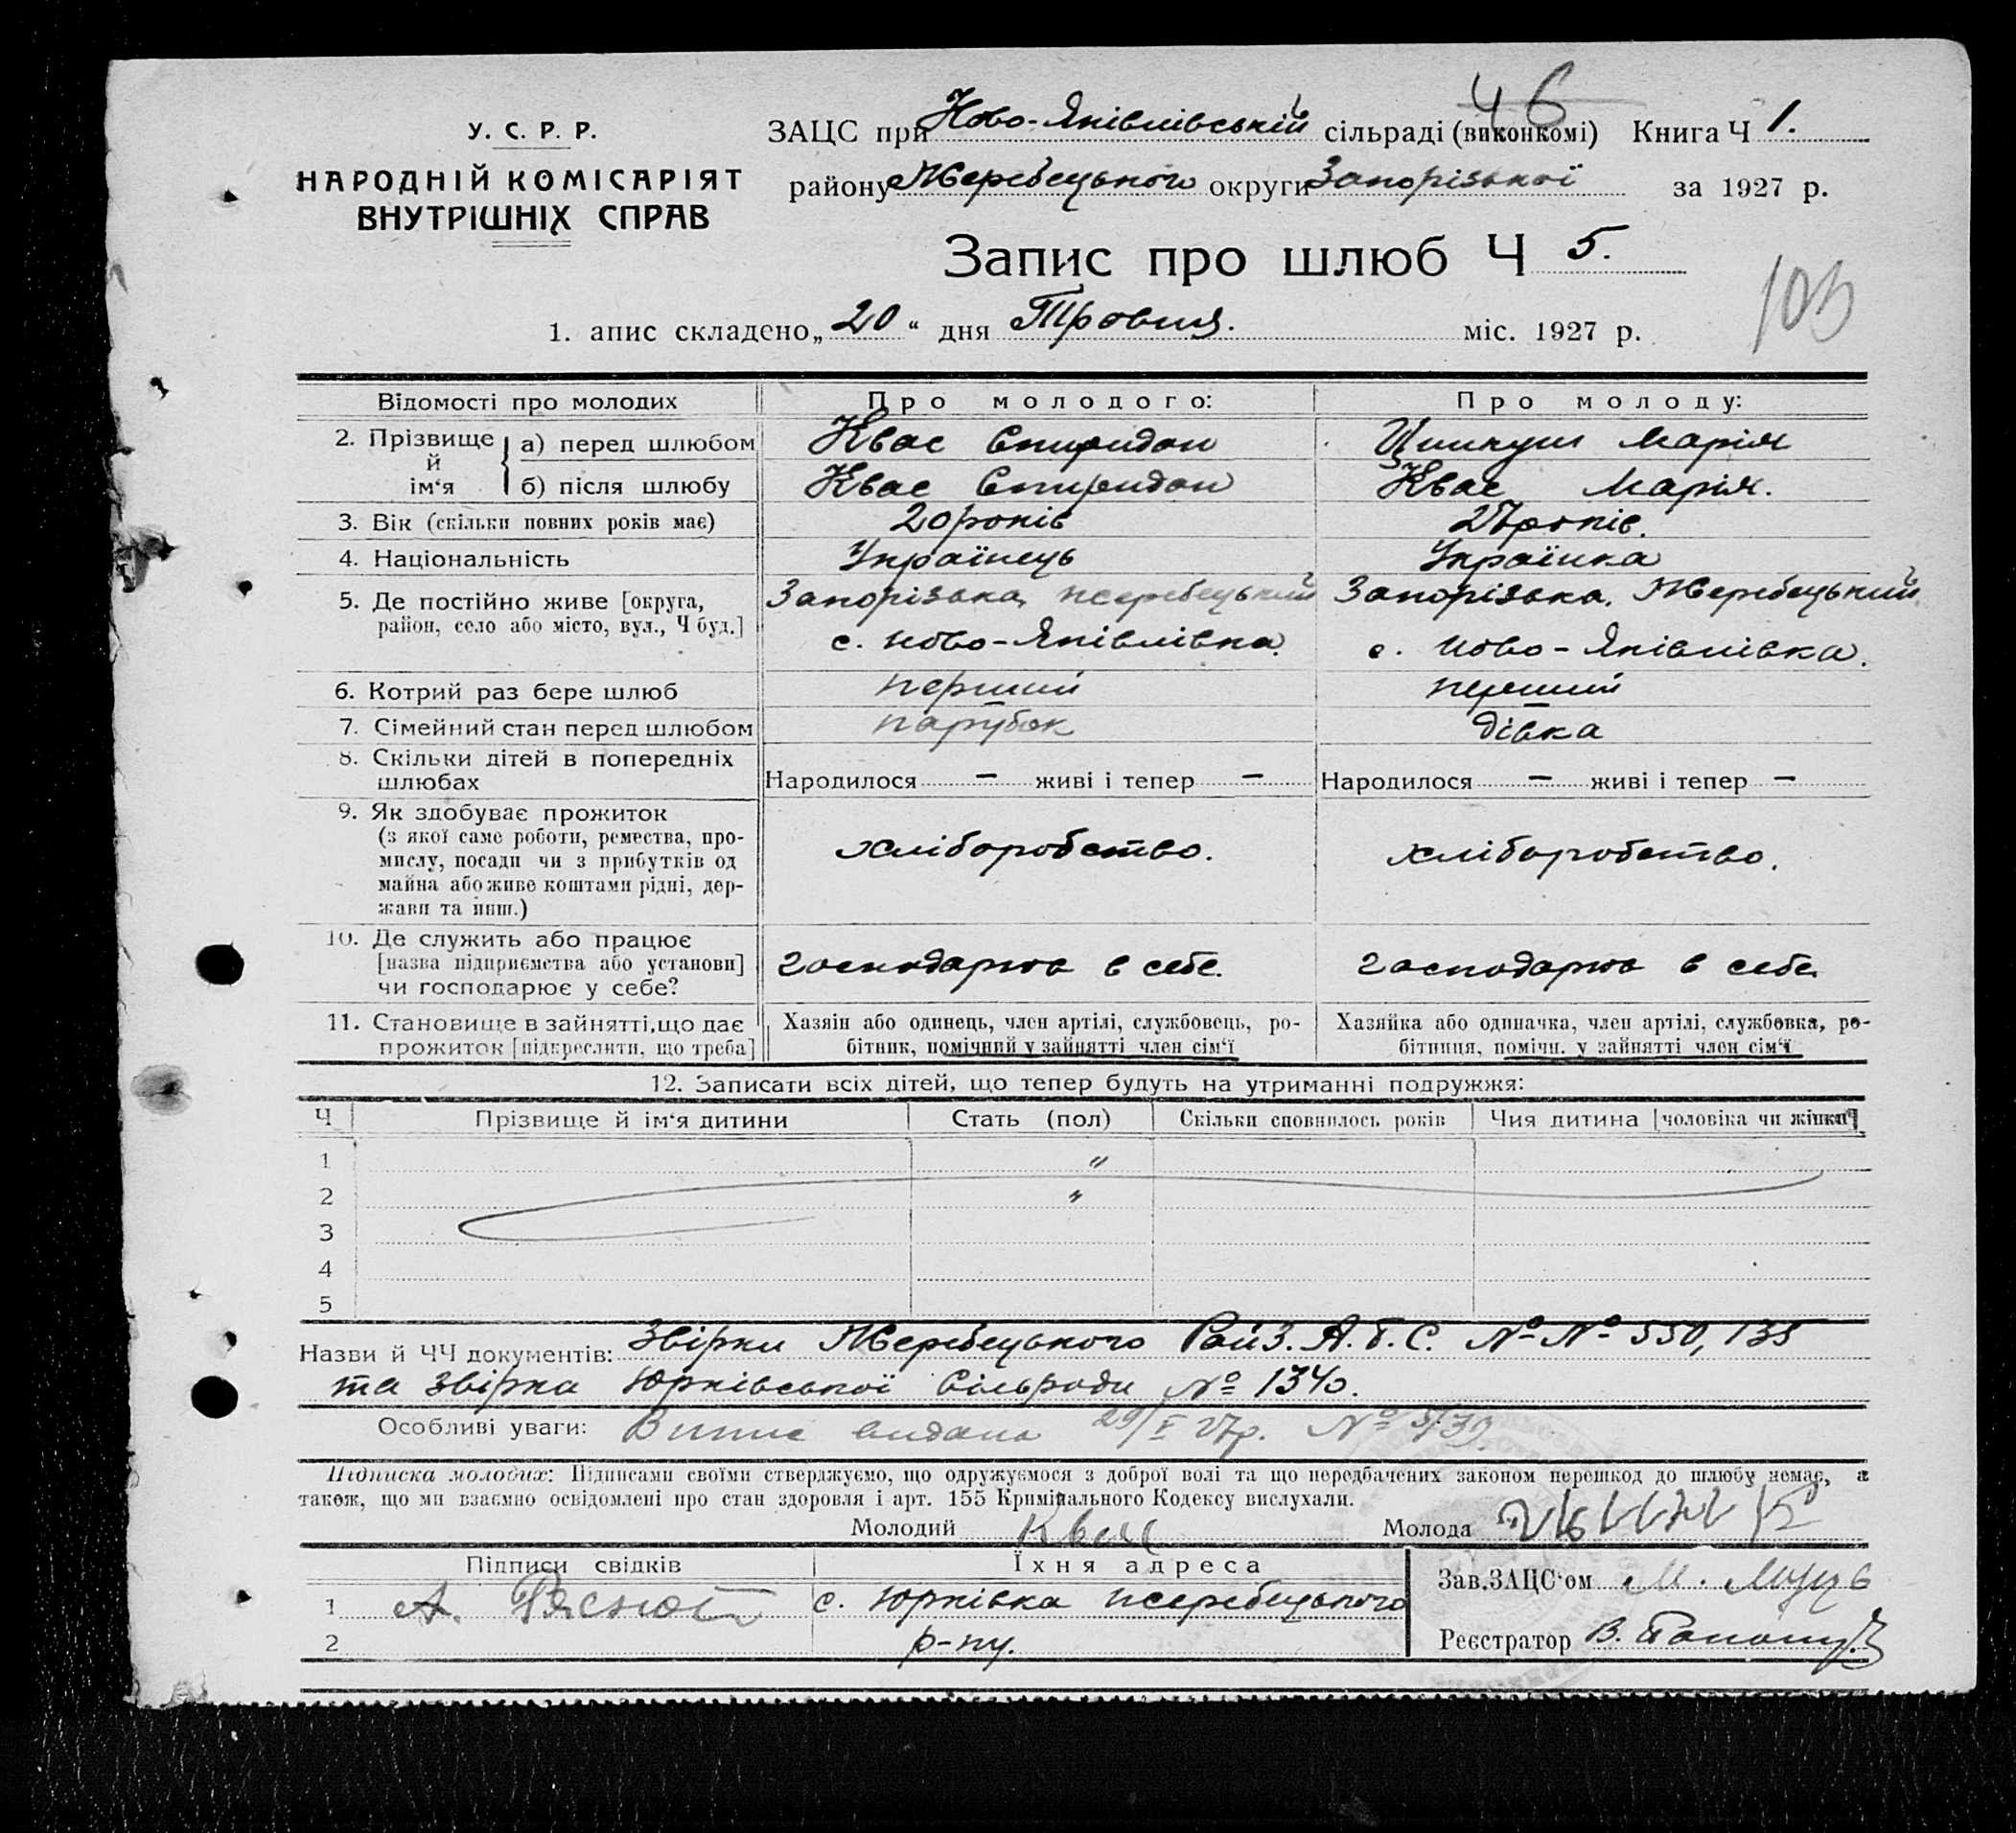 46
У. С. Р. Р.
НАРОДНІЙ КОМІСАРІЯТ
ВНУТРІШНІХ СПРАВ
ЗАЦС при Ново-Яківлівській сільраді (виконкомі) Книга Ч 1.
району Жеребецького округи Запорізької за 1927 р.
Запис про шлюб Ч 5.
103
1. апис складено „20“ дня Травня. міс. 1927 р.
Відомості про молодих Про молодого: Про молоду:
2. Прізвище й ім‘я а) перед шлюбом Квас Спиридон Марія
б) після шлюбу Квас Спиридон Квас Марія.
3. Вік (скільки повних років має) 20 років 27 років.
4. Національність Українець Українка
5. Де постійно живе [округа, Запорізька, жеребецький Запорізька. Жеребецький
район, село або місто, вул., Ч буд.] с. Ново-Яківлівка. с. Ново-Яківлівка.
6. Котрий раз бере шлюб перший перший
7. Сімейний стан перед шлюбом парубок дівка
8. Скільки дітей в попередніх
шлюбах Народилося — живі і тепер — Народилося — живі і тепер —
9. Як здобуває прожиток
(з якої саме роботи, ремества, про-
мислу, посади чи з прибутків од хліборобство. хліборобство.
майна або живе коштами рідні, дер-
жави та инш.)
10. Де служить або працює
[назва підприємства або установи] господарює в себе. господарює в себе.
чи господарює у себе?
11. Становище в зайнятті, що дає Хазяїн або одинець, член артілі, службовець, ро- Хазяйка або одиначка, член артілі, службовка, ро-
прожиток [підкреслити, що треба] бітник, помічний у зайнятті член сім‘ї бітниця, помічн. у зайнятті член сім‘ї
12. Записати всіх дітей, що тепер будуть на утриманні подружжя:
Ч Прізвище й ім‘я дитини Стать (пол) Скільки сповнилось років Чия дитина [чоловіка чи жінки]
1 "
2 "
3
4
5
Назви й ЧЧ документів: Звірки Жеребецького Рай З.А.Г.С. №№ 550, 135
та звірка Юрківської Сільради № 1340.
Особливі уваги: Випис видана 29/V 27р. № 5/39.
Підписка молодих: Підписами своїми стверджуємо, що одружуємося з доброї волі та що передбачених законом перешкод до шлюбу немає, а
також, що ми взаємно освідомлені про стан здоровля і арт. 155 Кримінального Кодексу вислухали.
Молодий Квас Молода
Підписи свідків Їхня адреса Зав. ЗАЦС‘ом М.
1 А. с. Юрківка жеребецького
2 р-ну. Реєстратор В.